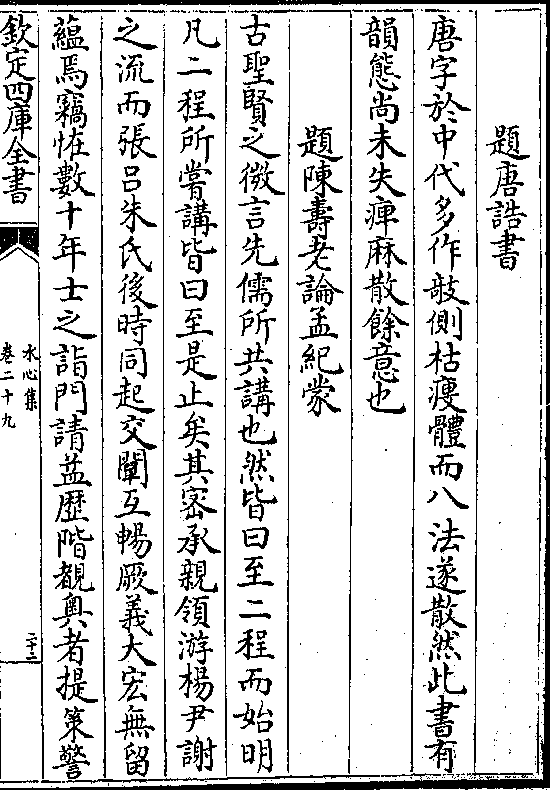 題唐誥書
唐字於中代多作敧側枯瘦體而八法遂散然此書有
韻態尚未失痺麻散餘意也
題陳壽老論孟紀蒙
古聖賢之微言先儒所共講也然皆曰至二程而始明
凡二程所嘗講皆曰至是止矣其宻承親領游楊尹謝
之流而張吕朱氏後時同起交闡互暢厥義大宏無留
蘊焉竊怪數十年士之詣門請益歴階覩奥者提策警
欽定四庫全書
水心集
卷二十九
二十二